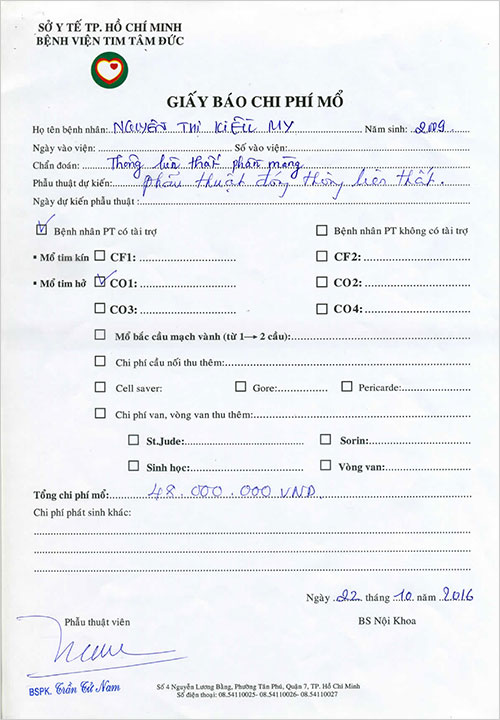 SỞ Y TẾ TP. HỒ CHÍ MINH
BỆNH VIỆN TIM TÂM ĐỨC
GIẤY BÁO CHI PHÍ MỔ
Họ tên bệnh nhân: NGUYỄN THỊ KIỀU MY Năm sinh: 2009
Ngày vào viện: Số vào viện:
Chẩn đoán: Thông liên thất phần màng
Phẫu thuật dự kiến: phẫu thuật đóng thông liên thất.
Ngày dự kiến phẫu thuật :
Bệnh nhân PT có tài trợ Bệnh nhân PT không có tài trợ
• Mổ tim kín CF1: CF2:
• Mổ tim hở CO1: CO2:
CO3: CO4:
Mổ bắc cầu mạch vành (từ 1→ 2 cầu):
Chi phí cầu nối thu thêm:
Cell saver: Gore: Pericarde:
Chi phí van, vòng van thu thêm:
St.Jude: Sorin:
Sinh học: Vòng van:
Tổng chi phí mổ: 48.000.000 VND
Chi phí phát sinh khác:
Ngày 22 tháng 10 năm 2016
Phẫu thuật viên BS Nội Khoa
BSPK. Trần Cử Nam
Số 4 Nguyễn Lương Bằng, Phường Tân Phú, Quận 7, TP. Hồ Chí Minh
Số điện thoại: 08.54110025- 08.54110026- 08.54110027